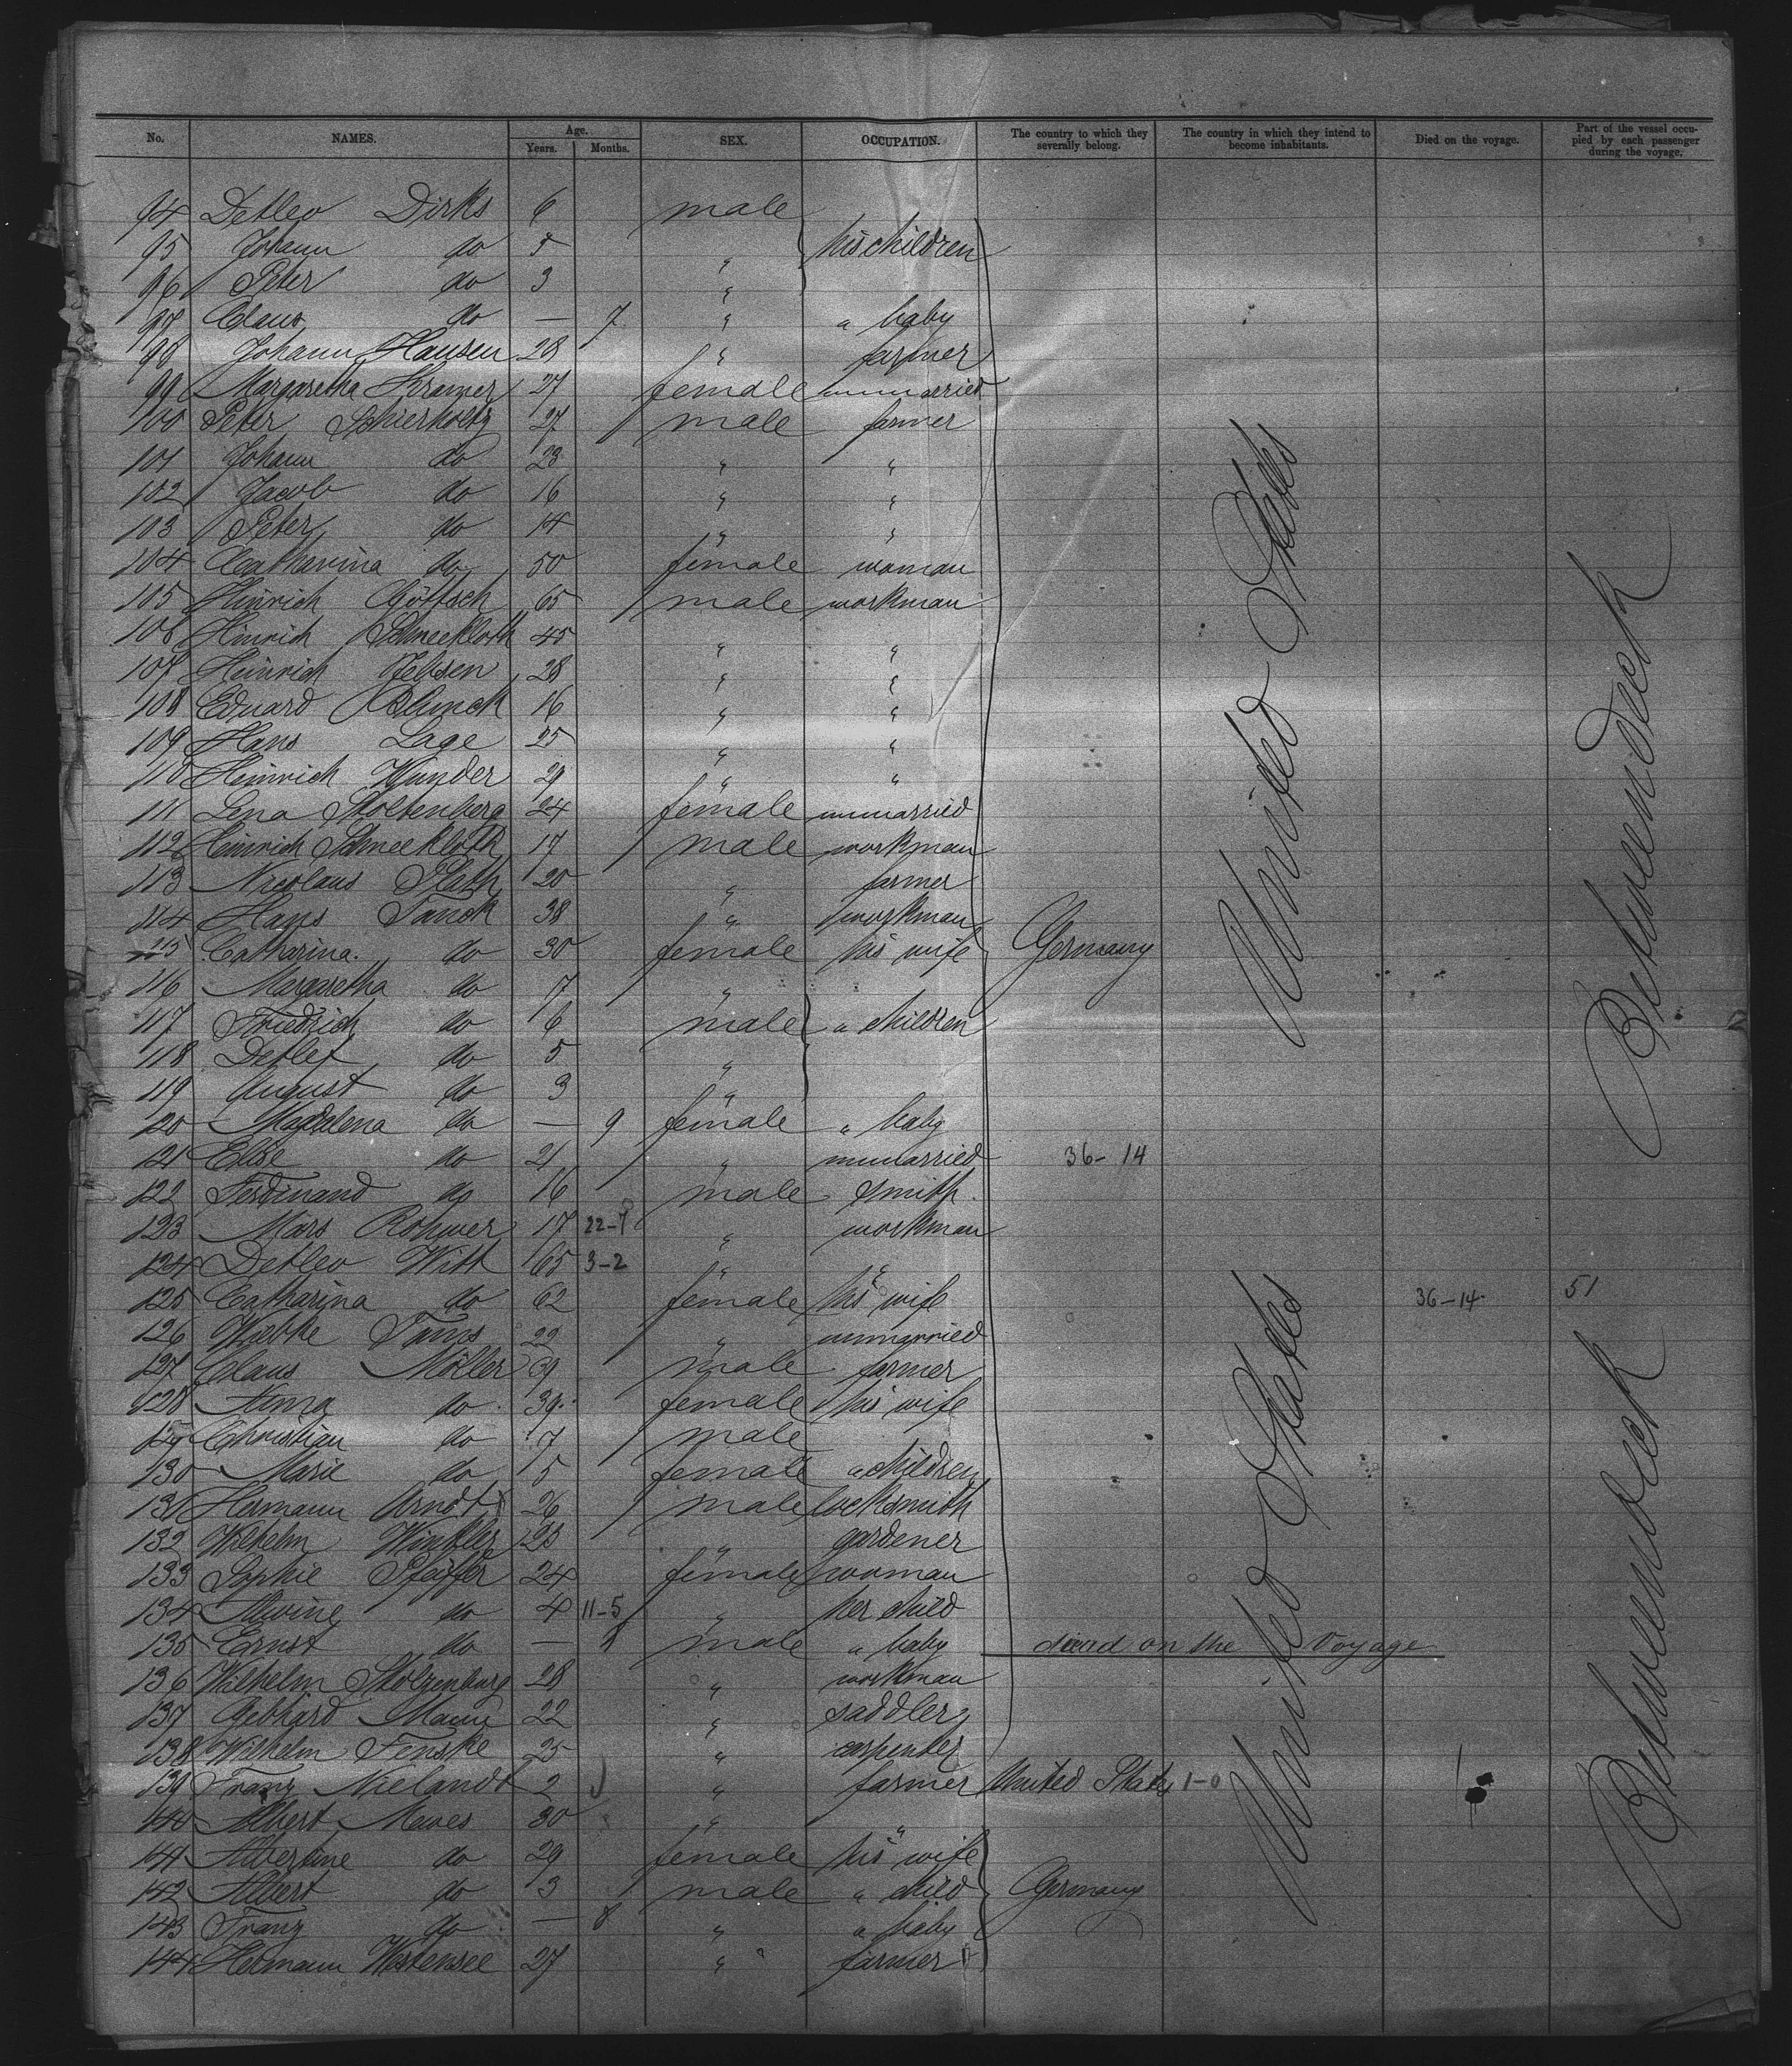 No. NAMES. Age. Years. Months. SEX. OCCUPATION. The country to which they severally belong. The country in which they intend to become inhabitants. Died on the voyage. Part of the vessel occupied by each passenger during the voyage.
94 Detlev Dirks 6 male
95 Johann do 5 " his children
96 Peter do 3 "
97 Claus do — 7 " " baby
98 Johann Hansen 28 " farmer
99 Margaretha Kramer 27 female unmarried
100 Peter Schierholtz 27 male farmer
101 Johann do 23 " "
102 Jacob do 16 " "
103 Peter do 14 " "
104 Catharina do 50 female woman
105 Hinrich Göttsch 65 male workman
106 Hinrich Schneekloth 45 " "
107 Heinrich Jebsen 28 " "
108 Eduard Blunck 16 " "
109 Hans Lage 25 " "
110 Heinrich Wunder 29 " "
111 Lena Stoltenberg 24 female unmarried
112 Heinrich Schneekloth 17 male workman
113 Nicolaus Plath 20 " farmer
114 Hans Tanck 38 " workman
115 Catharina do 30 female his wife Germany United States Betweendeck
116 Margaretha do 7 "
117 Friedrich do 6 male " children
118 Detlef do 5 "
119 August do 3 "
120 Magdalena do — 9 female " baby
121 Elise do 21 " unmarried 36-14
122 Ferdinand do 16 male smith
123 Mars Rohwer 17 22-7 " workman
124 Detlev Witt 65 3-2 " "
125 Catharina do 62 female his wife 36-14 51
126 Wiebke 22 " unmarried
127 Claus Möller 39 male farmer
128 Anna do 39 female his wife
129 Christian do 7 male
130 Marie do 5 female " children
131 Hermann Arndt 26 male locksmith
132 Wilhelm Winkler 23 " gardener
133 Sophie Pfeiffer 24 female woman
134 Alwine do 4 11-5 " her child
135 Ernst do — male " baby died on the Voyage
136 Wilhelm Stolzenburg 28 " workman
137 Gebhard 22 " saddler
138 Wilhelm Fenske 25 " carpenter
139 Franz Nielandt 2 " farmer United States 1-0 United States Betweendeck
140 Albert Mewes 30 " "
141 Albertine do 29 female his wife
142 Albert do 3 male " child Germany
143 Franz do — 8 " " baby
144 Hermann Westensee 27 " farmer